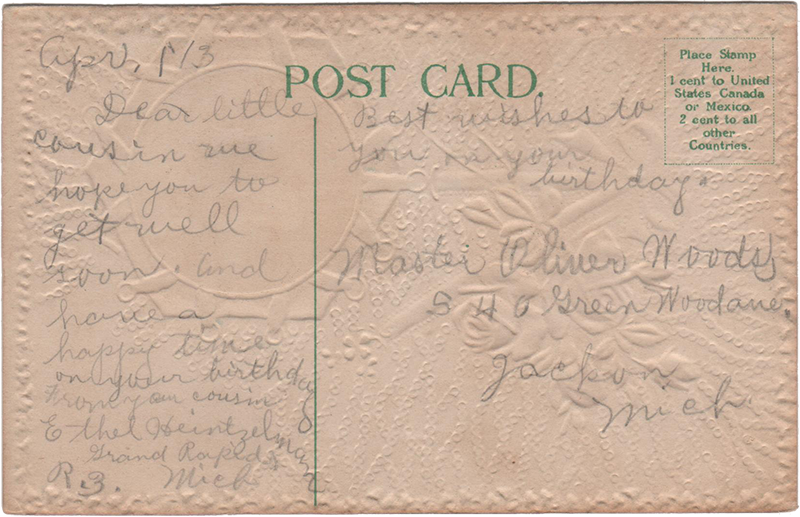 Apr, 1913
POST CARD.
Place Stamp
Here.
1 cent to United
States Canada
or Mexico.
2 cent to all
other
Countries.
Dear little
cousin we
hope you to
get well
soon. and
have a
happy time
on your birthday
From your cousin
Ethel Heintzelman
Grand Rapids
R.3. Mich
Best wishes to
you on your
birthday.
Master Oliver Woods,
540 Green Wood ave.
Jackon
Mich.